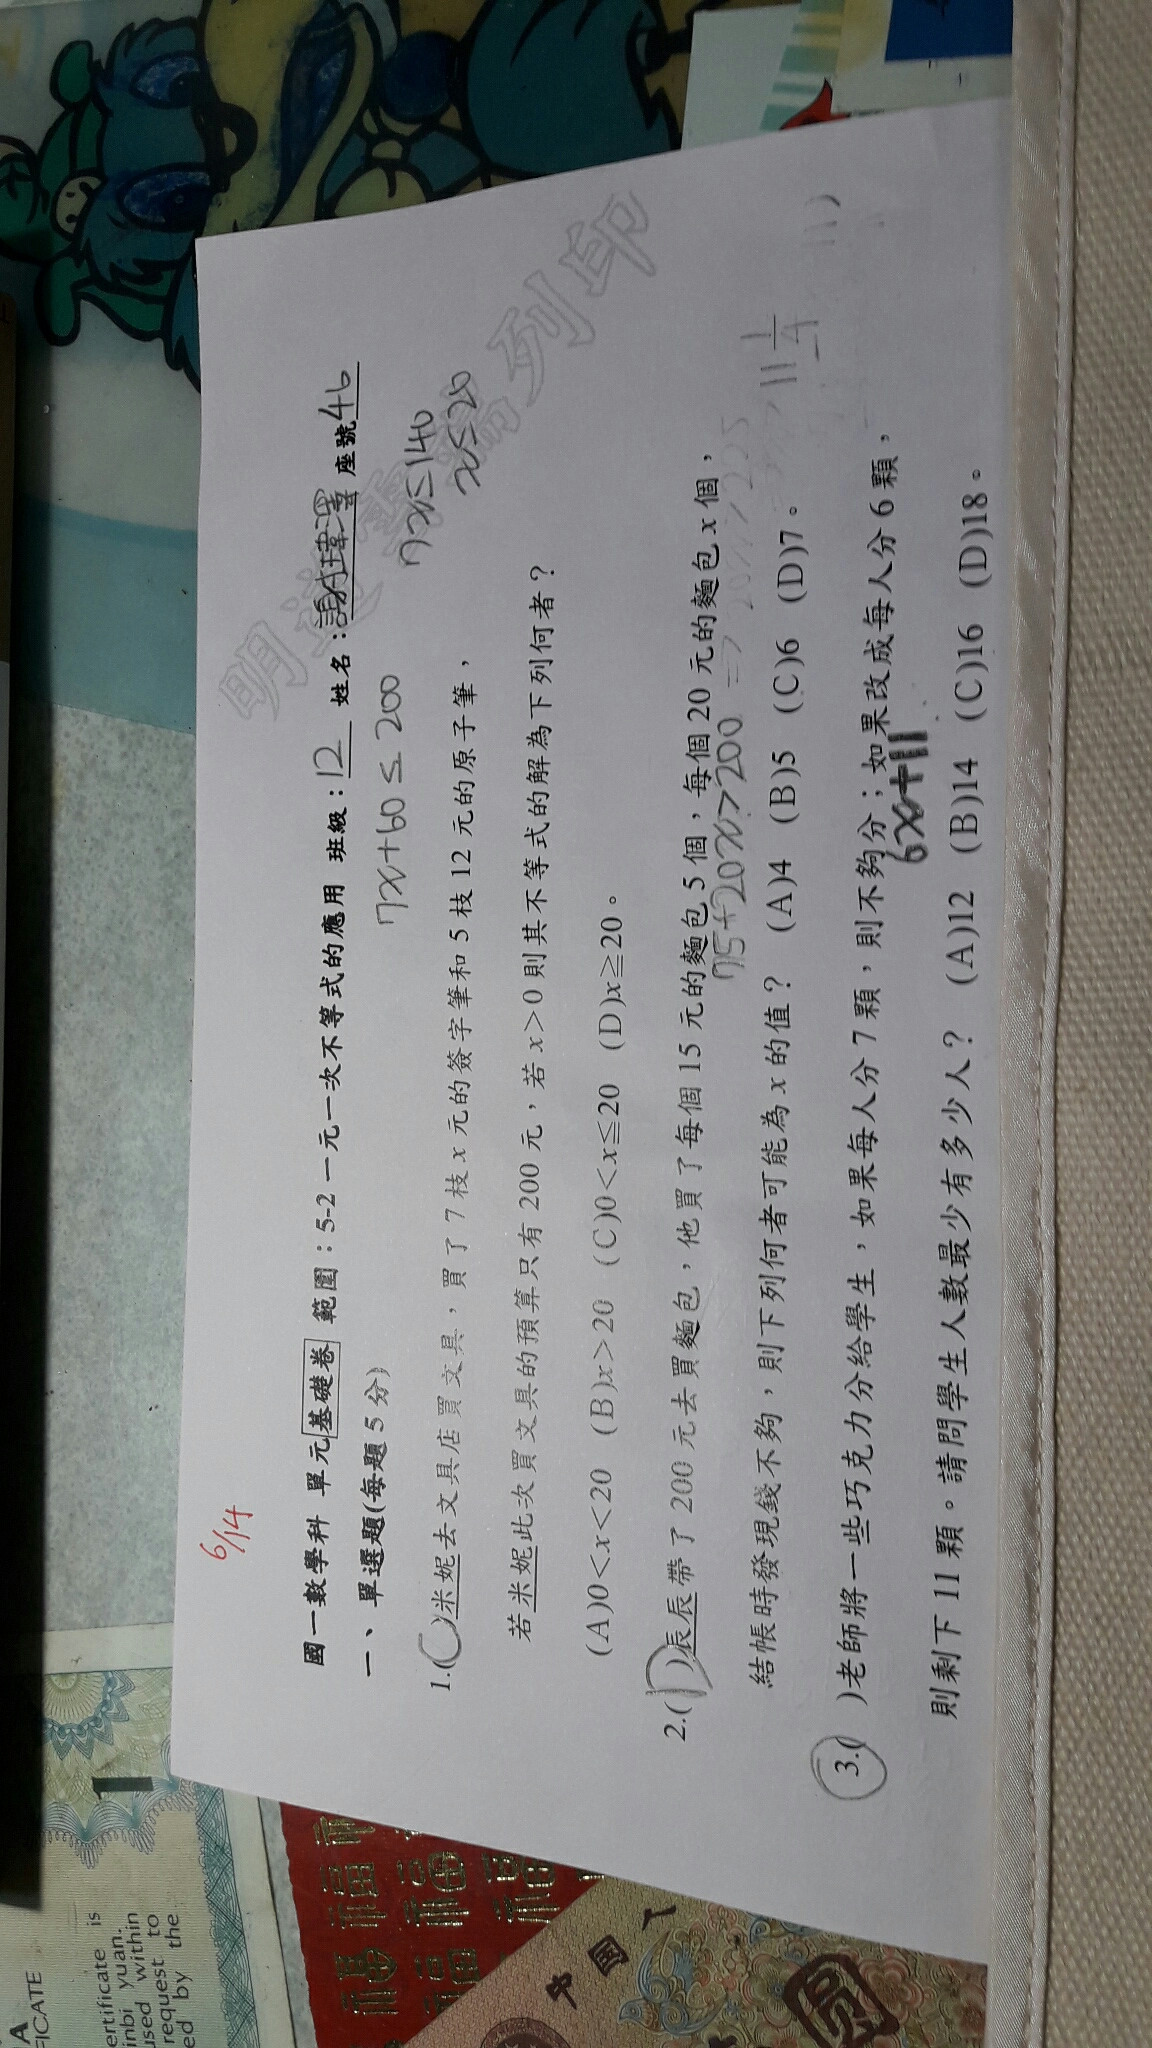 6/14
國一數學科 單元基礎卷 範圍：5-2 一元一次不等式的應用 班級：12 姓名： 座號46
一、單選題(每題 5 分)
7x+60≤200
7x≤140
x≤20
1.(C)米妮去文具店買文具，買了 7 枝 x 元的簽字筆和 5 枝 12 元的原子筆，
若米妮此次買文具的預算只有 200 元，若 x＞0 則其不等式的解為下列何者？
(A)0＜x＜20 (B)x＞20 (C)0＜x≦20 (D)x≧20。
2.(D)辰辰帶了 200 元去買麵包，他買了每個 15 元的麵包 5 個，每個 20 元的麵包 x 個，
75+20x>200
結帳時發現錢不夠，則下列何者可能為 x 的值？ (A)4 (B)5 (C)6 (D)7。
3.( )老師將一些巧克力分給學生，如果每人分 7 顆，則不夠分；如果改成每人分 6 顆，
6x+11
則剩下 11 顆。請問學生人數最少有多少人？ (A)12 (B)14 (C)16 (D)18。
1
中國人